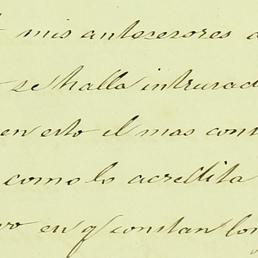 mis antesesores
se halla intrusad
en esto el mas con
como lo acredita
en q constan lo